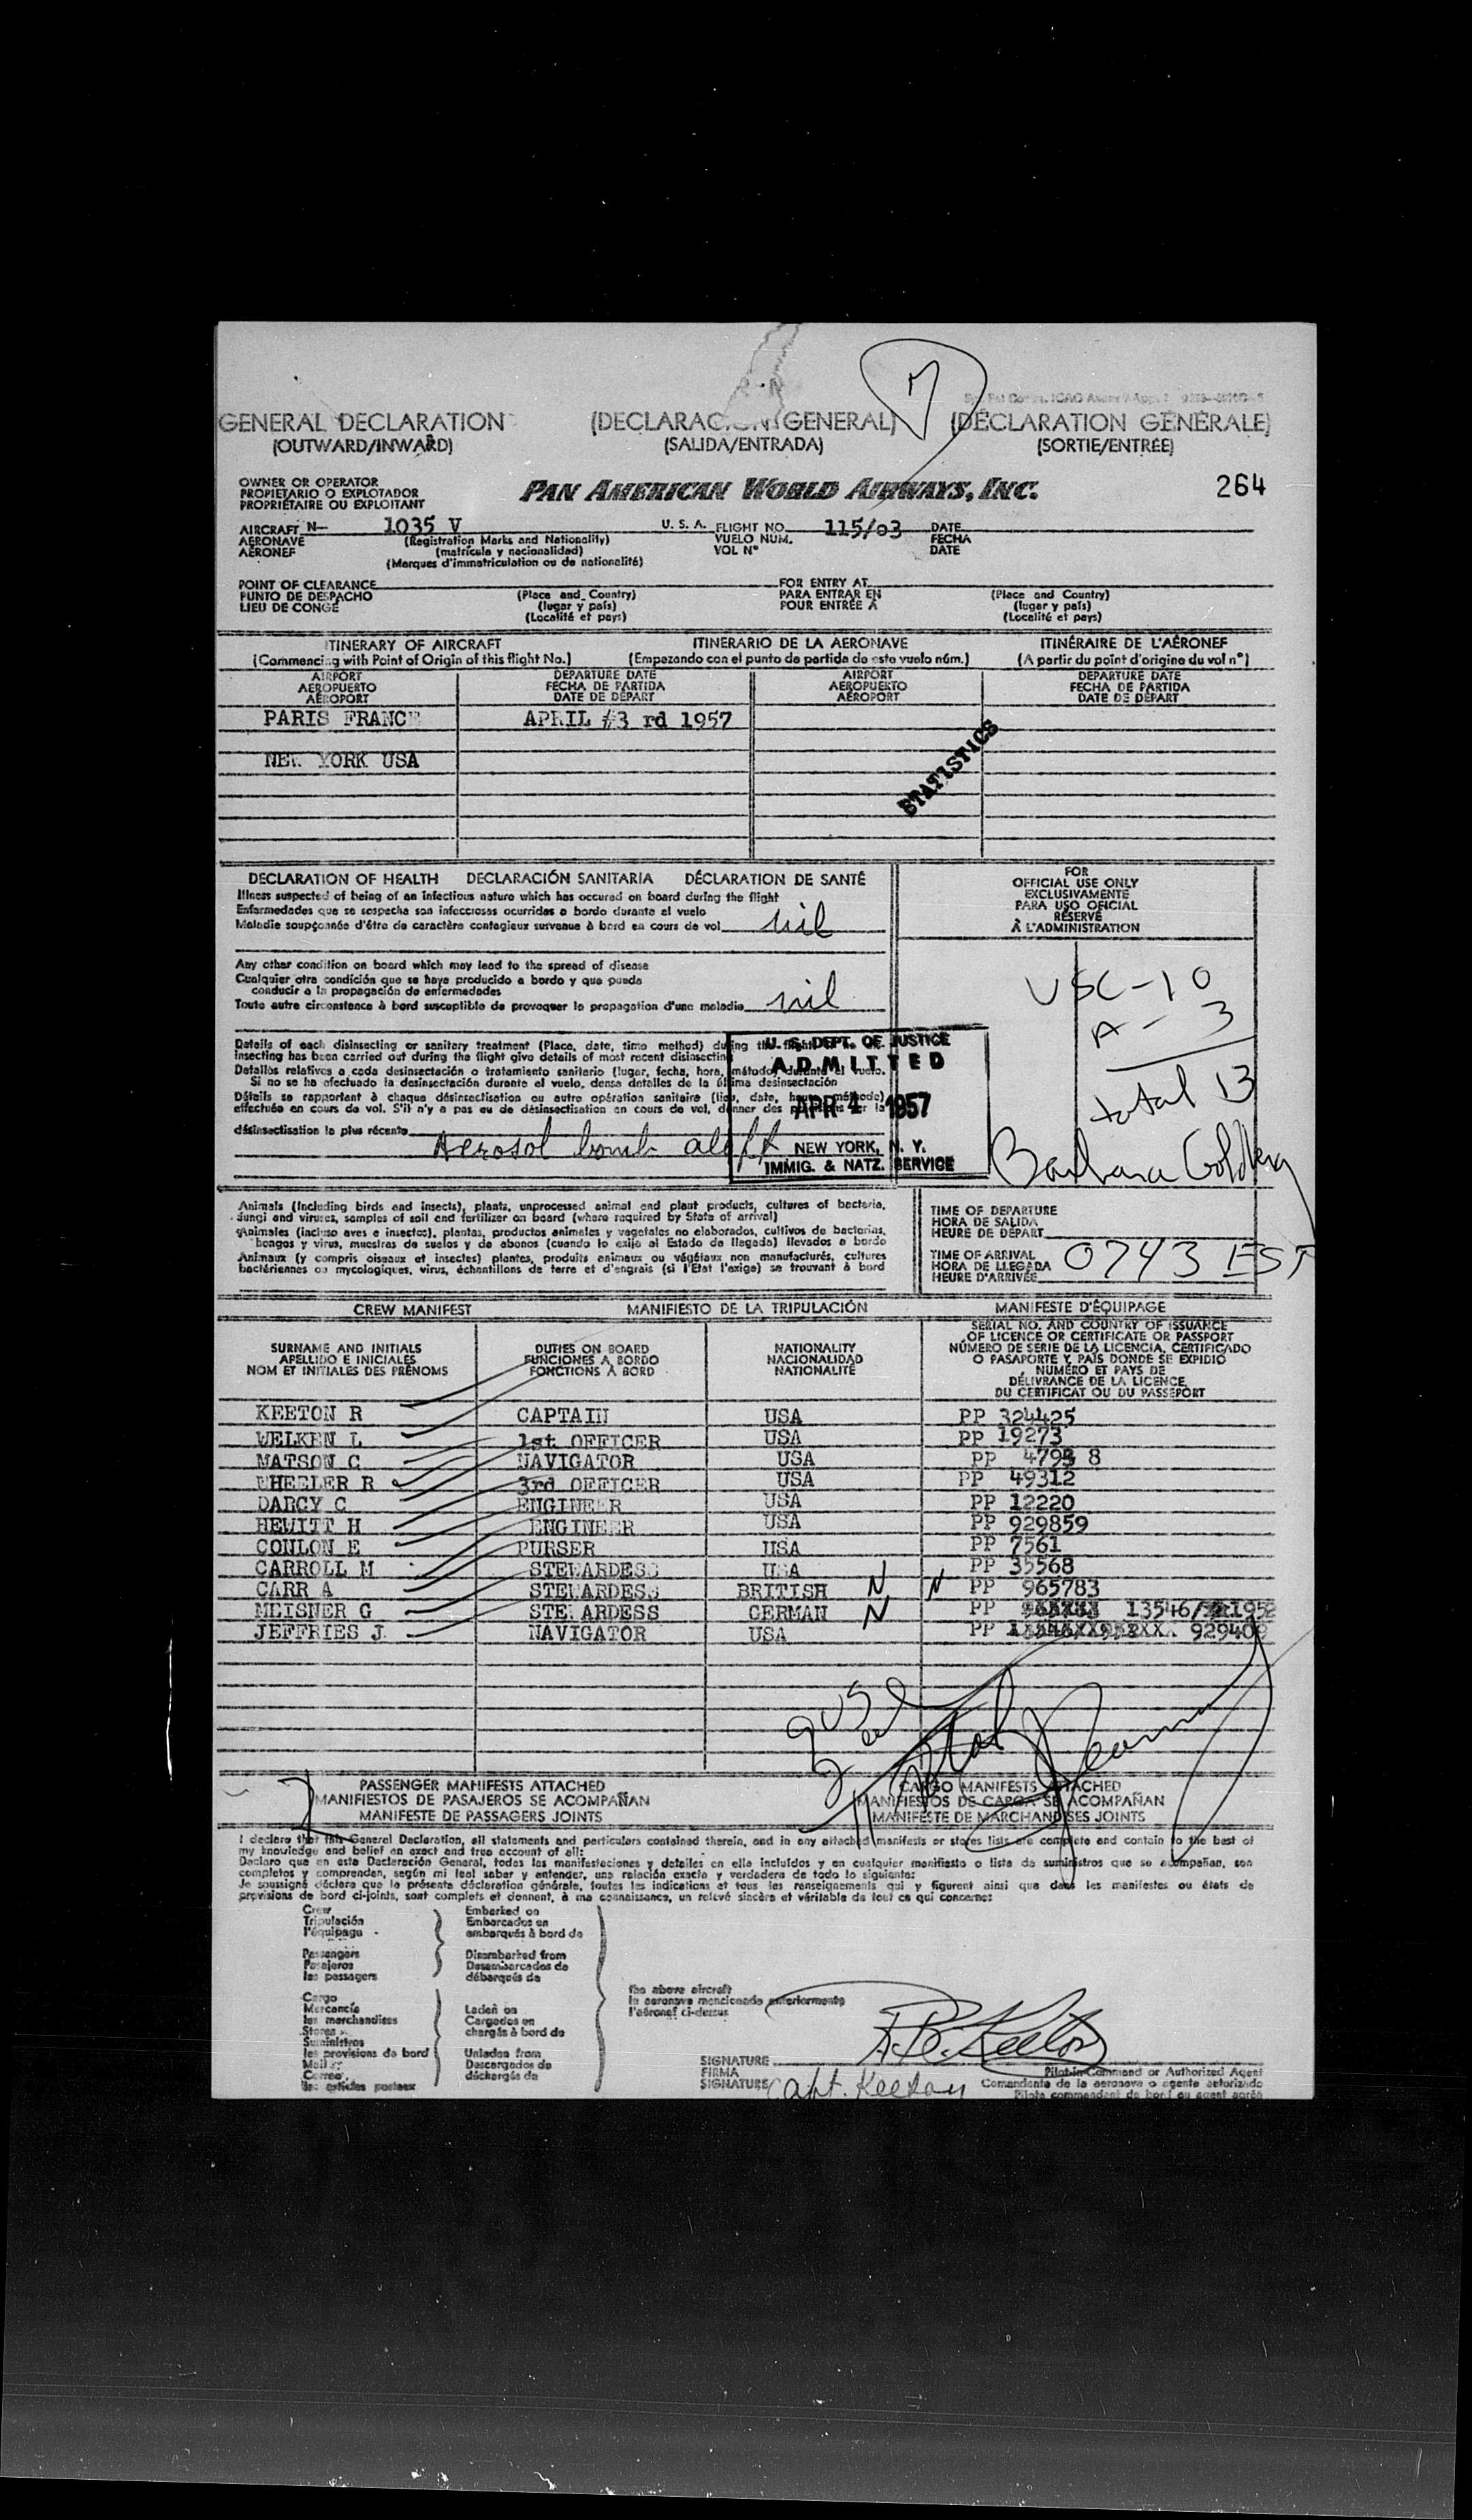 GENERAL DECLARATION (DECLARACIÓN GENERAL) (DÉCLARATION GÉNÉRALE)
(OUTWARD/INWARD) (SALIDA/ENTRADA) (SORTIE/ENTRÉE)
OWNER OR OPERATOR
PROPIETARIO O EXPLOTADOR
PROPRIÉTAIRE OU EXPLOITANT
PAN AMERICAN WORLD AIRWAYS, INC.
264
AIRCRAFT N- 1035 V U. S. A. FLIGHT NO. 115/03 DATE
AERONAVE (Registration Marks and Nationality) VUELO NUM. FECHA
AÉRONEF (matrícula y nacionalidad) VOL N° DATE
(Marques d'immatriculation ou de nationalité)
POINT OF CLEARANCE FOR ENTRY AT
PUNTO DE DESPACHO (Place and Country) PARA ENTRAR EN (Place and Country)
LIEU DE CONGÉ (lugar y país) POUR ENTRÉE À (lugar y país)
(Localité et pays) (Localité et pays)
ITINERARY OF AIRCRAFT ITINERARIO DE LA AERONAVE ITINÉRAIRE DE L'AÉRONEF
(Commencing with Point of Origin of this flight No.) (Empezando con el punto de partida de este vuelo núm.) (A partir du point d'origine du vol n°)
AIRPORT DEPARTURE DATE AIRPORT DEPARTURE DATE
AEROPUERTO FECHA DE PARTIDA AEROPUERTO FECHA DE PARTIDA
AÉROPORT DATE DE DÉPART AÉROPORT DATE DE DÉPART
PARIS FRANCE APRIL 3 rd 1957
NEW YORK USA
STATISTICS
DECLARATION OF HEALTH DECLARACIÓN SANITARIA DÉCLARATION DE SANTÉ
Illness suspected of being of an infectious nature which has occured on board during the flight
Enfermedades que se sospecha son infecciosas ocurridas a bordo durante el vuelo
Maladie soupçonnée d'être de caractère contagieux survenue à bord en cours de vol nil
Any other condition on board which may lead to the spread of disease
Cualquier otra condición que se haya producido a bordo y que pueda
conducir a la propagación de enfermedades
Toute autre circonstance à bord susceptible de provoquer la propagation d'une maladie nil
Details of each disinsecting or sanitary treatment (Place, date, time method) during the flight.
insecting has been carried out during the flight give details of most recent disinsecting
Detalles relativos a cada desinsectación o tratamiento sanitario (lugar, fecha, hora, método) durante el vuelo.
Si no se ha efectuado la desinsectación durante el vuelo, dense detalles de la última desinsectación
Détails se rapportant à chaque désinsectisation ou autre opération sanitaire (lieu, date, heure, méthode)
effectuée en cours de vol. S'il n'y a pas eu de désinsectisation en cours de vol, donner des précisions sur la
désinsectisation la plus récente Aerosol bomb aloft
U. S. DEPT. OF JUSTICE
ADMITTED
APR 4 1957
NEW YORK, N. Y.
IMMIG. & NATZ. SERVICE
FOR
OFFICIAL USE ONLY
EXCLUSIVAMENTE
PARA USO OFICIAL
RÉSERVÉ
À L'ADMINISTRATION
USC-10
A - 3
total 13
Barbara Goldberg
Animals (including birds and insects), plants, unprocessed animal and plant products, cultures of bacteria,
fungi and viruses, samples of soil and fertilizer on board (where required by State of arrival)
Animales (incluso aves e insectos), plantas, productos animales y vegetales no elaborados, cultivos de bacterias,
hongos y virus, muestras de suelos y de abonos (cuando lo exija el Estado de llegada) llevados a bordo
Animaux (y compris oiseaux et insectes) plantes, produits animaux ou végétaux non manufacturés, cultures
bactériennes ou mycologiques, virus, échantillons de terre et d'engrais (si l'Etat l'exige) se trouvant à bord
TIME OF DEPARTURE
HORA DE SALIDA
HEURE DE DÉPART
TIME OF ARRIVAL
HORA DE LLEGADA
HEURE D'ARRIVÉE
0743 EST
CREW MANIFEST MANIFIESTO DE LA TRIPULACIÓN MANIFESTE D'ÉQUIPAGE
SURNAME AND INITIALS
APELLIDO E INICIALES
NOM ET INITIALES DES PRÉNOMS
DUTIES ON BOARD
FUNCIONES A BORDO
FONCTIONS À BORD
NATIONALITY
NACIONALIDAD
NATIONALITÉ
SERIAL NO. AND COUNTRY OF ISSUANCE
OF LICENCE OR CERTIFICATE OR PASSPORT
NÚMERO DE SERIE DE LA LICENCIA, CERTIFICADO
O PASAPORTE Y PAÍS DONDE SE EXPIDIÓ
NUMÉRO ET PAYS DE
DÉLIVRANCE DE LA LICENCE,
DU CERTIFICAT OU DU PASSEPORT
KEETON R CAPTAIN USA PP 324425
WELKEN L 1st OFFICER USA PP 19273
MATSON C NAVIGATOR USA PP 4798 8
WHEELER R 3rd OFFICER USA PP 49312
DARCY C ENGINEER USA PP 12220
HEWITT H ENGINEER USA PP 929859
CONLON E PURSER USA PP 7561
CARROLL M STEWARDESS USA PP 35568
CARR A STEWARDESS BRITISH N N PP 965783
MEISNER G STEWARDESS GERMAN N PP 13546/ 1952
JEFFRIES J NAVIGATOR USA PP 929409
9 USC
2
11 total
PASSENGER MANIFESTS ATTACHED
MANIFIESTOS DE PASAJEROS SE ACOMPAÑAN
MANIFESTE DE PASSAGERS JOINTS
CARGO MANIFESTS ATTACHED
MANIFIESTOS DE CARGA SE ACOMPAÑAN
MANIFESTE DE MARCHANDISES JOINTS
I declare that this General Declaration, all statements and particulars contained therein, and in any attached manifests or stores lists are complete and contain to the best of
my knowledge and belief an exact and true account of all:
Declaro que en esta Declaración General, todas las manifestaciones y detalles en ella incluídos y en cualquier manifiesto o lista de suministros que se acompañan, son
completos y comprenden, según mi leal saber y entender, una relación exacta y verdadera de todo lo siguiente:
Je soussigné déclare que la présente déclaration générale, toutes les indications et tous les renseignements qui y figurent ainsi que dans les manifestes ou états de
provisions de bord ci-joints, sont complets et donnent, à ma connaissance, un relevé sincère et véritable de tout ce qui concerne:
Crew
Tripulación
l'équipage
Embarked on
Embarcados en
embarqués à bord de
Passengers
Pasajeros
les passagers
Disembarked from
Desembarcados de
débarqués de
Cargo
Mercancía
les marchandises
Stores
Suministros
les provisions de bord
Mail
Correo
les articles postaux
Laden on
Cargados en
chargés à bord de
Unladen from
Descargados de
déchargés de
The above aircraft
la aeronave mencionada anteriormente
l'aéronef ci-dessus
SIGNATURE R.D. Keeton
FIRMA
SIGNATURE Capt. Keeton
Pilot-in-Command or Authorized Agent
Comandante de la aeronave o agente autorizado
Pilote commandant de bord ou agent agréé